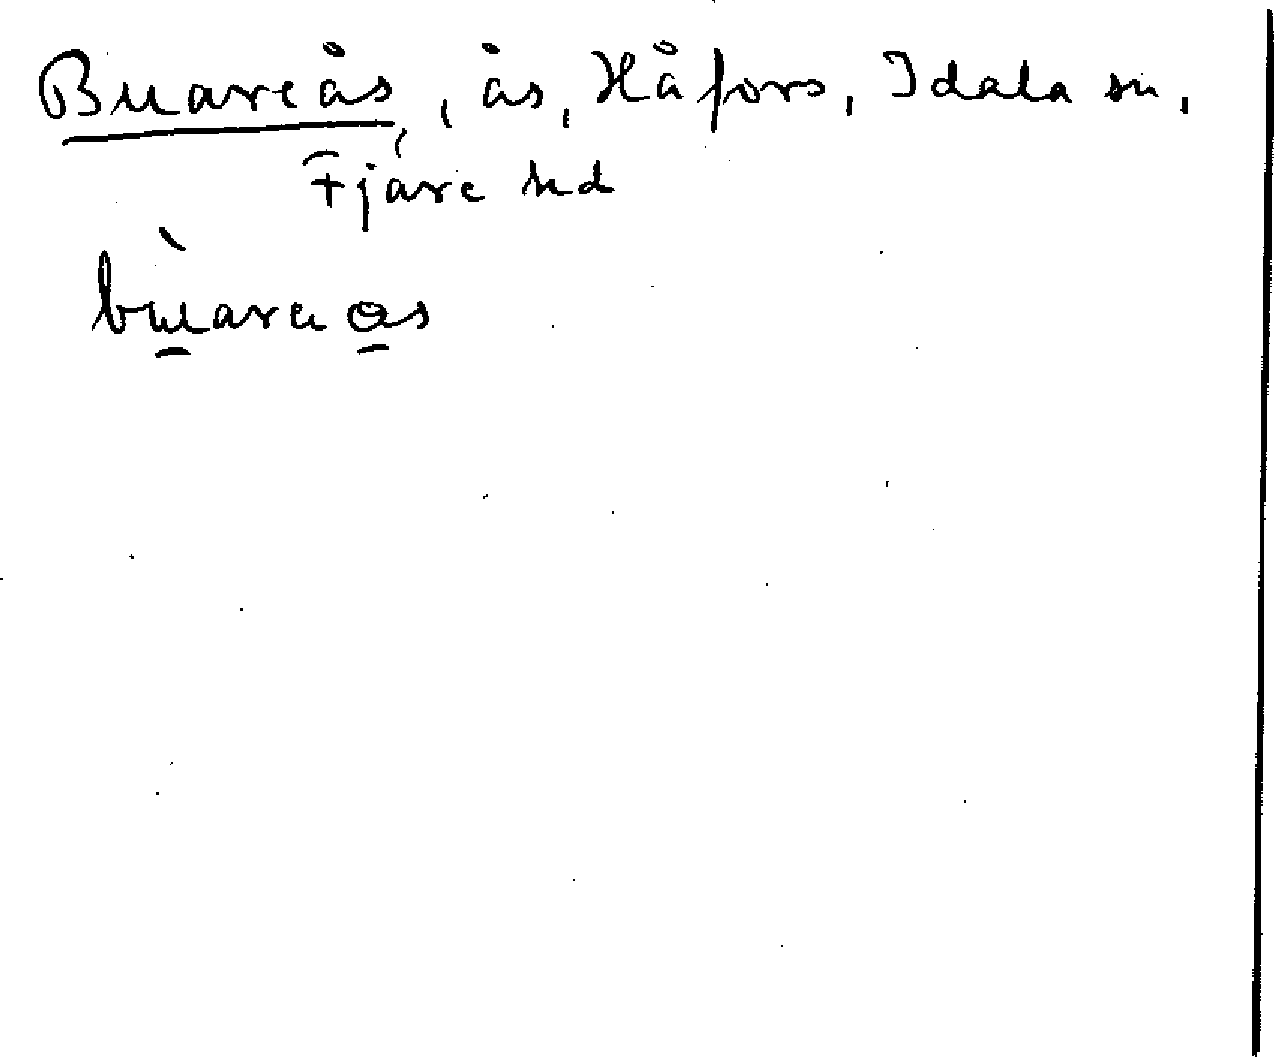 Buareås, ås, Håfors, Idala sn,
Fjäre hd
bùarɐ ɑs